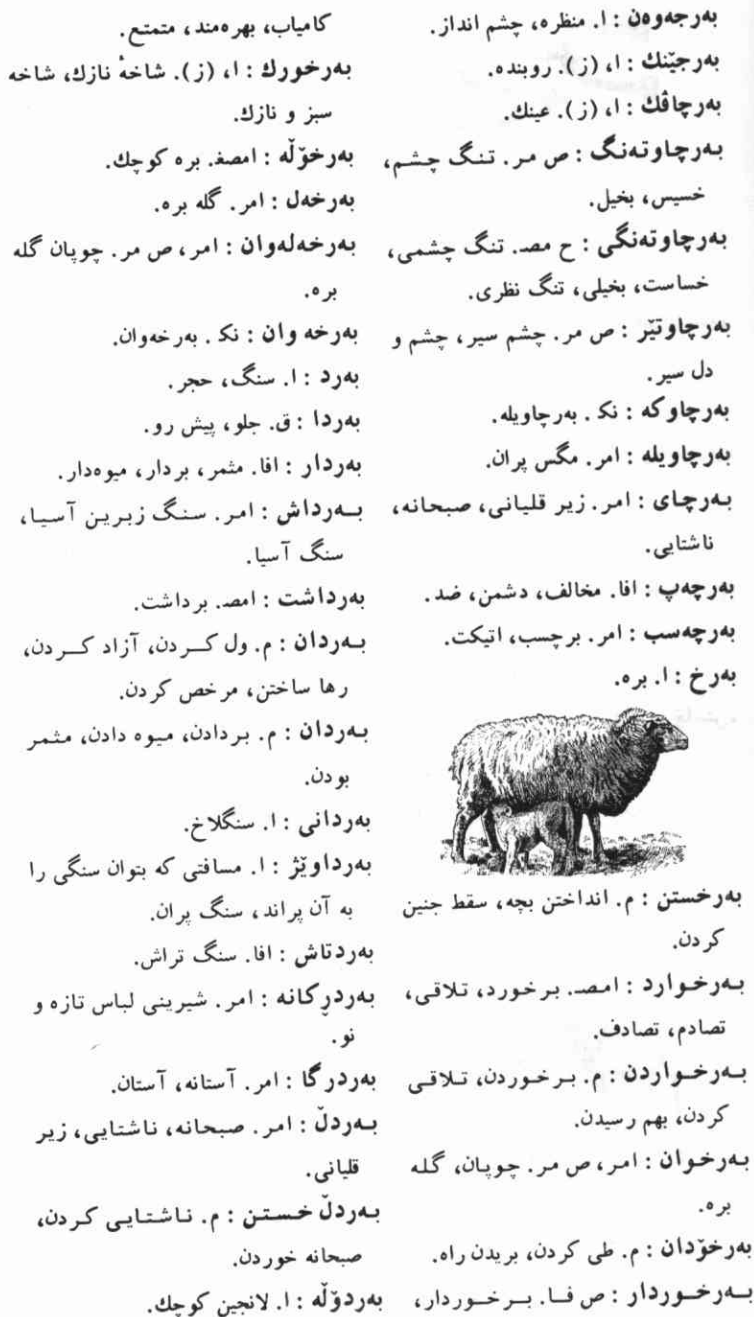 بەرجەوەن : ا. منظره، چشم انداز.
بەرجێنك : ا، (ز). روبنده.
بەرچاڤك : ا، (ز). عینك.
بەرچاوتەنگ : ص مر. تنگ چشم،
خسیس، بخیل.
بەرچاوتەنگی : ح مصـ. تنگ چشمی،
خساست، بخیلی، تنگ نظری.
بەرچاوتێر : ص مر. چشم سیر، چشم و
دل سیر.
بەرچاوکە : نکـ . بەرچاویلە.
بەرچاویلە : امر. مگس پران.
بەرچای : امر. زیر قلیانی، صبحانه،
ناشتایی.
بەرچەپ : افا. مخالف، دشمن، ضد.
بەرچەسب : امر. برچسب، اتیکت.
بەرخ : ا. بره.
بەرخستن : م. انداختن بچه، سقط جنین
کردن.
بەرخوارد : امصـ. برخورد، تلاقی،
تصادم، تصادف.
بەرخواردن : م. برخوردن، تلاقی
کردن، بهم رسیدن.
بەرخوان : امر، ص مر. چوپان، گله
بره.
بەرخۆدان : م. طی کردن، بریدن راه.
بەرخوردار : ص فا. برخوردار،
کامیاب، بهره‌مند، متمتع.
بەرخورك : ا، (ز). شاخهٔ نازك، شاخه
سبز و نازك.
بەرخۆڵە : امصغـ. بره کوچك.
بەرخەل : امر. گله بره.
بەرخەلەوان : امر، ص مر. چوپان گله
بره.
بەرخە وان : نکـ . بەرخەوان.
بەرد : ا. سنگ، حجر.
بەردا : ق. جلو، پیش رو.
بەردار : افا. مثمر، بردار، میوه‌دار.
بەرداش : امر. سنگ زبرین آسیا،
سنگ آسیا.
بەرداشت : امصـ. برداشت.
بەردان : م. ول کردن، آزاد کردن،
رها ساختن، مرخص کردن.
بەردان : م. بردادن، میوه دادن، مثمر
بودن.
بەردانی : ا. سنگلاخ.
بەرداوێژ : ا. مسافتی که بتوان سنگی را
به آن پراند، سنگ پران.
بەردتاش : افا. سنگ تراش.
بەردڕکانە : امر. شیرینی لباس تازه و
نو.
بەردرگا : امر. آستانه، آستان.
بەردڵ : امر. صبحانه، ناشتایی، زیر
قلیانی.
بەردڵ خستن : م. ناشتایی کردن،
صبحانه خوردن.
بەردۆڵە : ا. لانجین کوچك.